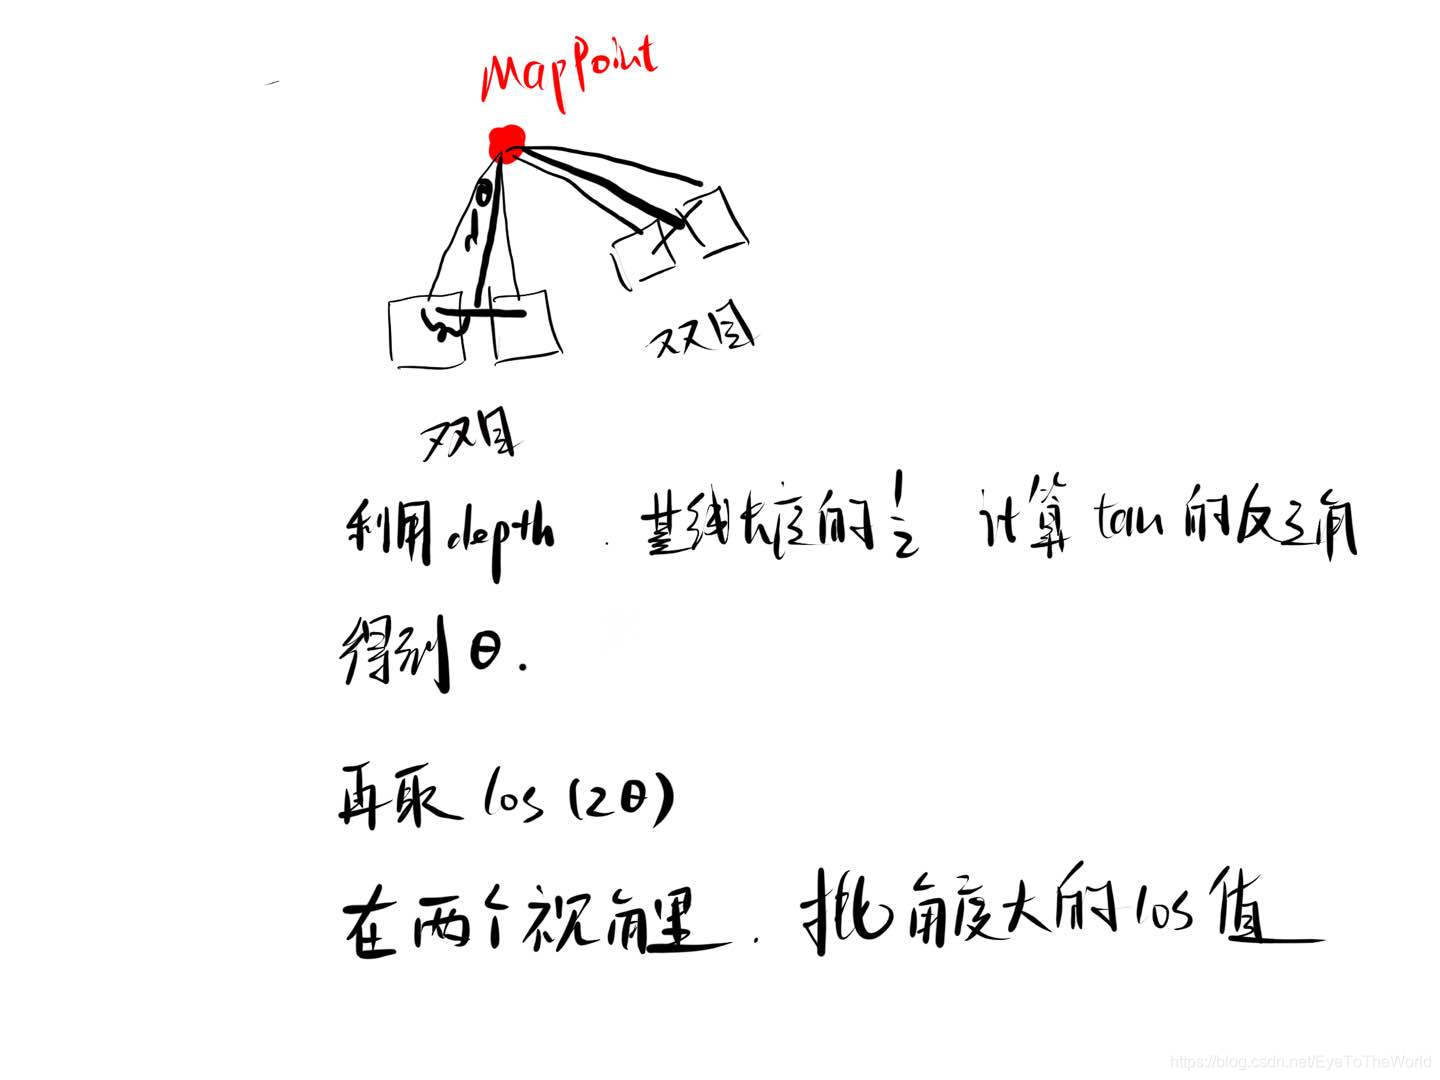 MapPoint
θ
d
双目
双目
利用depth . 基线长度的 1/2 计算 tan 的反三角
得到 θ.
再取 cos (2θ)
在两个视角里. 挑角度大的cos值
https://blog.csdn.net/EyeToTheWorld